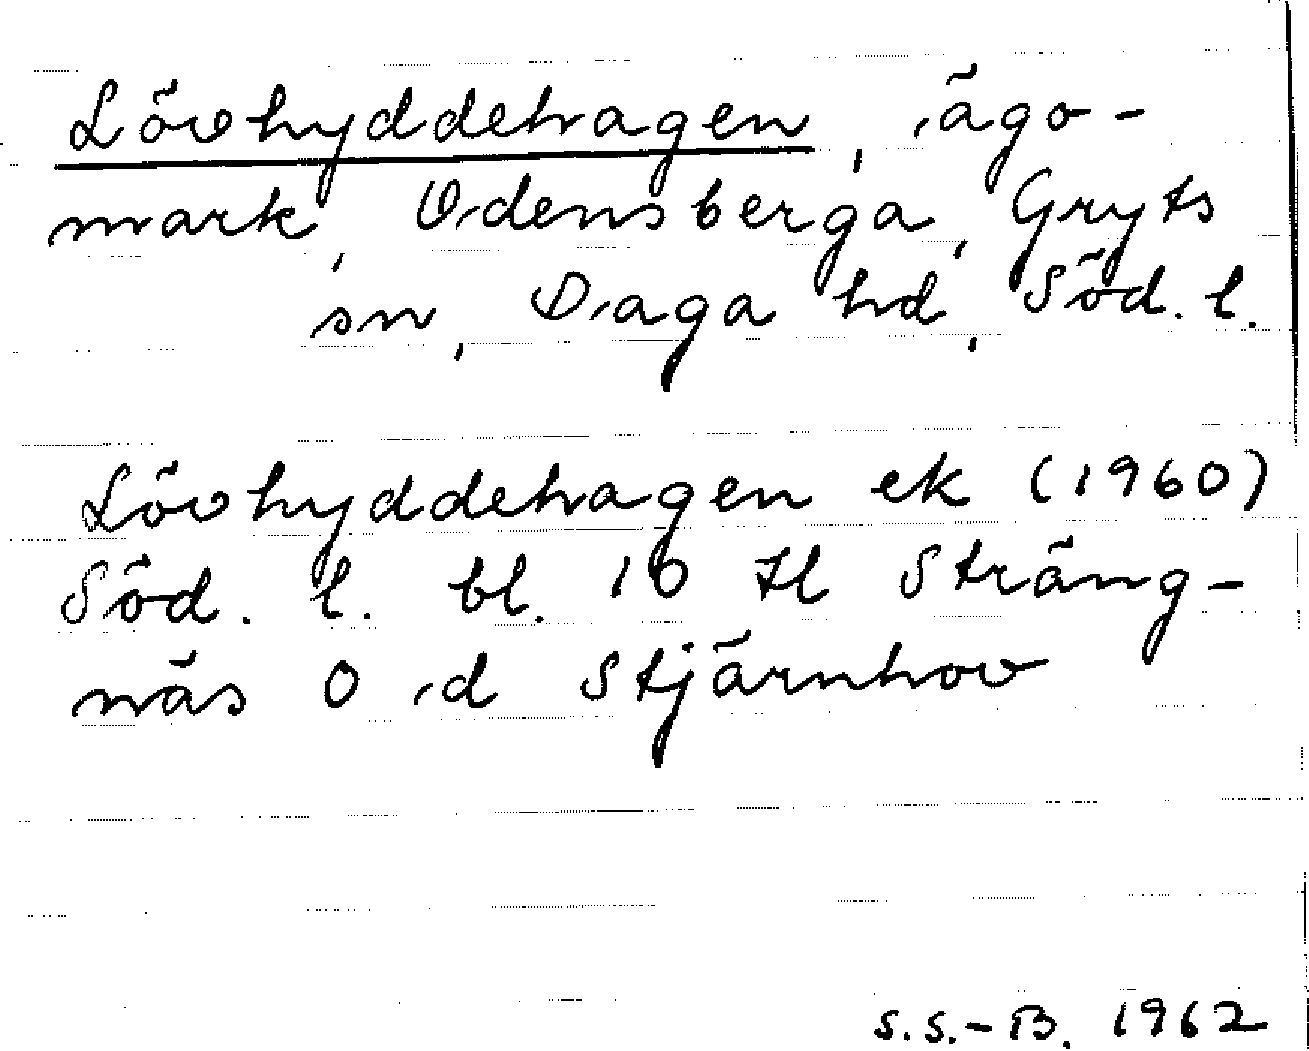 Lövhyddehagen, ägo-
mark, Odensberga, Gryts
sn, Daga hd, Söd. l.
Lövhyddehagen ek (1960)
Söd. l. bl. 10 H Sträng-
näs 0 d Stjärnhov
S.S.-B. 1962